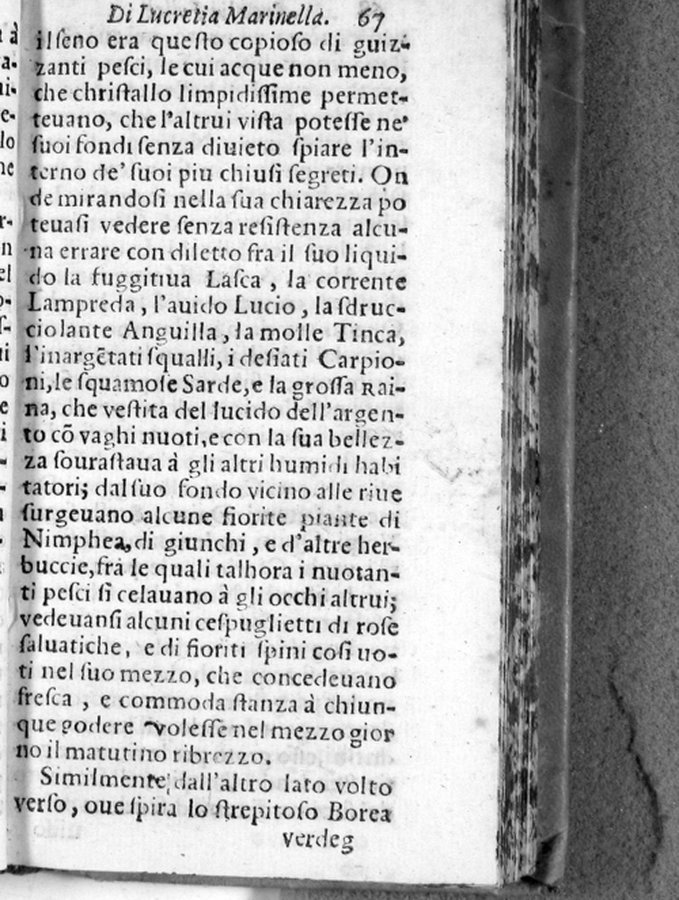 Di Lucretia Marinella. 67
il ſeno era queſto copioſo di guiz-
zanti peſci, le cui acque non meno,
che chriſtallo limpidiſſime permet-
teuano, che l'altrui viſta poteſſe ne'
ſuoi fondi ſenza diuieto ſpiare l'in-
terno de' ſuoi piu chiuſi ſegreti. On
de mirandoſi nella ſua chiarezza po
teuaſi vedere ſenza reſiſtenza alcu-
na errare con diletto fra il ſuo liqui-
do la fuggitiua Laſca, la corrente
Lampreda, l'auido Lucio, la ſdruc-
ciolante Anguilla, la molle Tinca,
l'inargētati ſqualli, i deſiati Carpio-
ni, le ſquamoſe Sarde, e la groſſa Rai-
na, che veſtita del lucido dell'argen-
to cō vaghi nuoti, e con la ſua bellez-
za ſouraſtaua à gli altri humidi habi
tatori; dal ſuo fondo vicino alle riue
ſurgeuano alcune fiorite piante di
Nimphea, di giunchi, e d'altre her-
buccie, frà le quali talhora i nuotan-
ti peſci ſi celauano à gli occhi altrui;
vedeuanſi alcuni ceſpuglietti di roſe
ſaluatiche, e di fioriti ſpini coſi uo-
ti nel ſuo mezzo, che concedeuano
freſca, e commoda ſtanza à chiun-
que godere voleſſe nel mezzo gior
no il matutino ribrezzo.
Similmente dall'altro lato volto
verſo, oue ſpira lo ſtrepitoſo Borea
verdeg